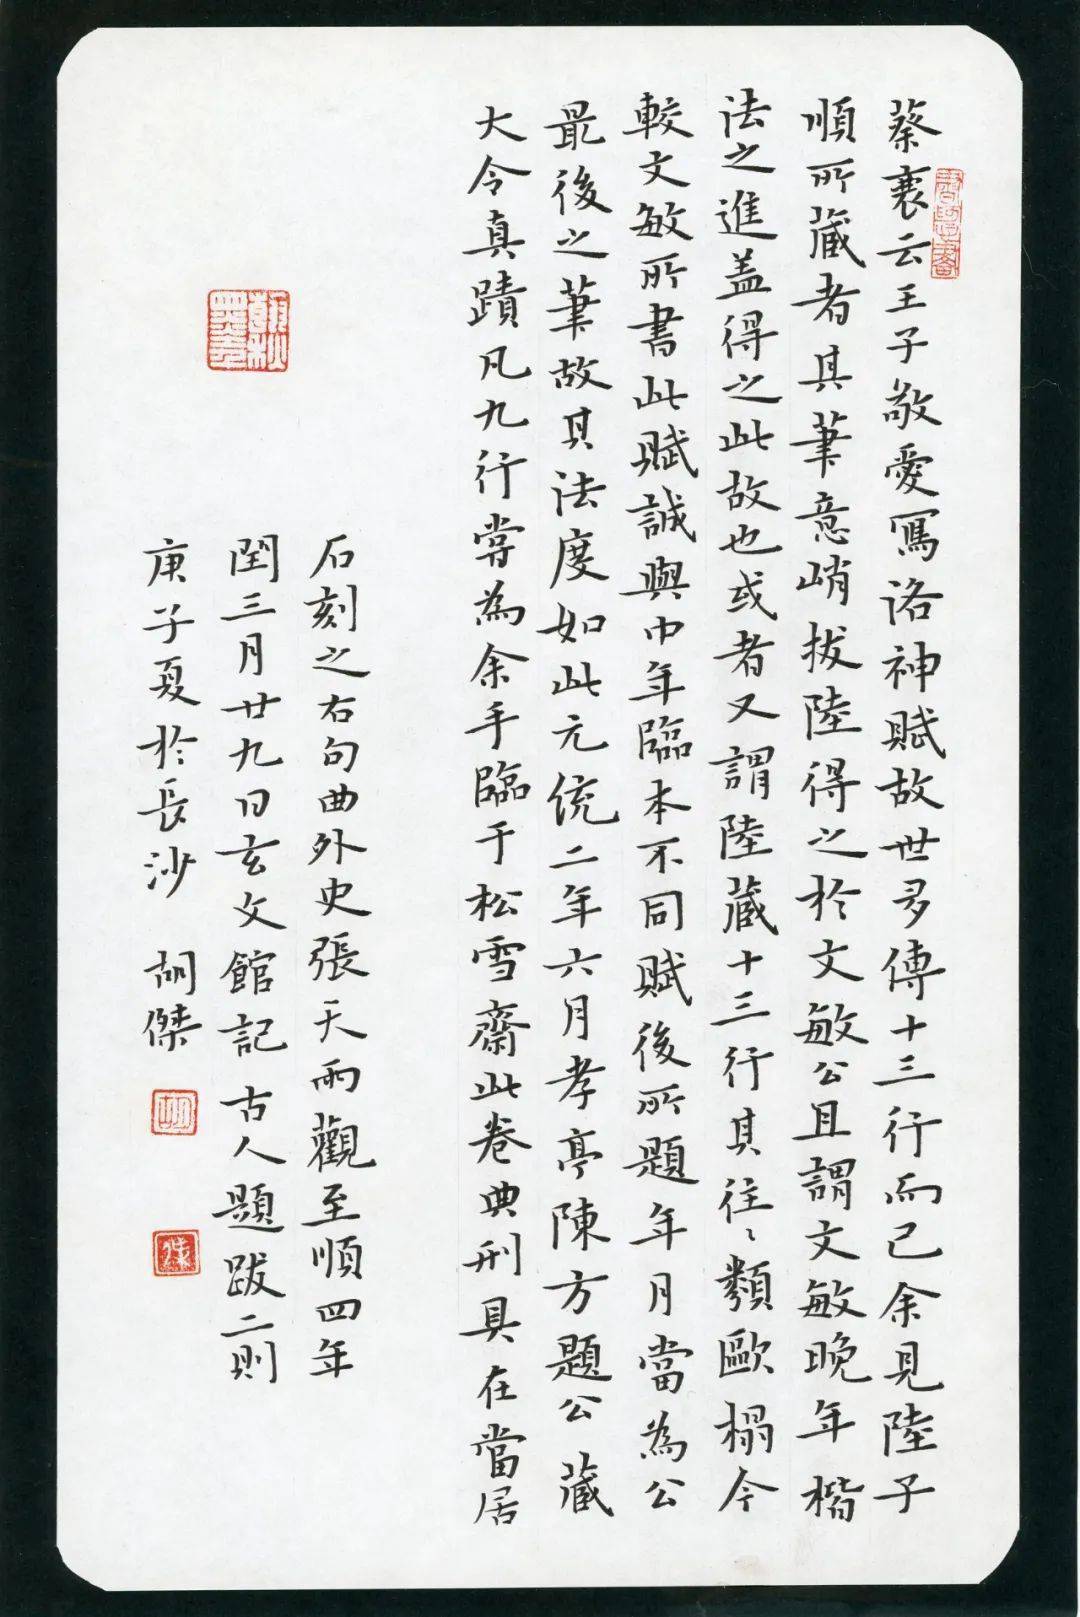 蔡襄云王子敬愛寫洛神賦故世多傳十三行而已余見陸子
順所藏者其筆意峭拔陸得之於文敏公且謂文敏晚年楷
法之進盖得之此故也或者又謂陸藏十三行其往〻類歐榻今
較文敏所書此賦誠與中年臨本不同賦後所題年月當為公
最後之筆故其法度如此元統二年六月孝亭陳方題公藏
大令真蹟凡九行嘗為余手臨于松雪齋此卷典刑具在當居
石刻之右句曲外史張天雨觀至順四年
閏三月廿九日玄文館記 古人題跋二則
庚子夏於長沙 胡傑